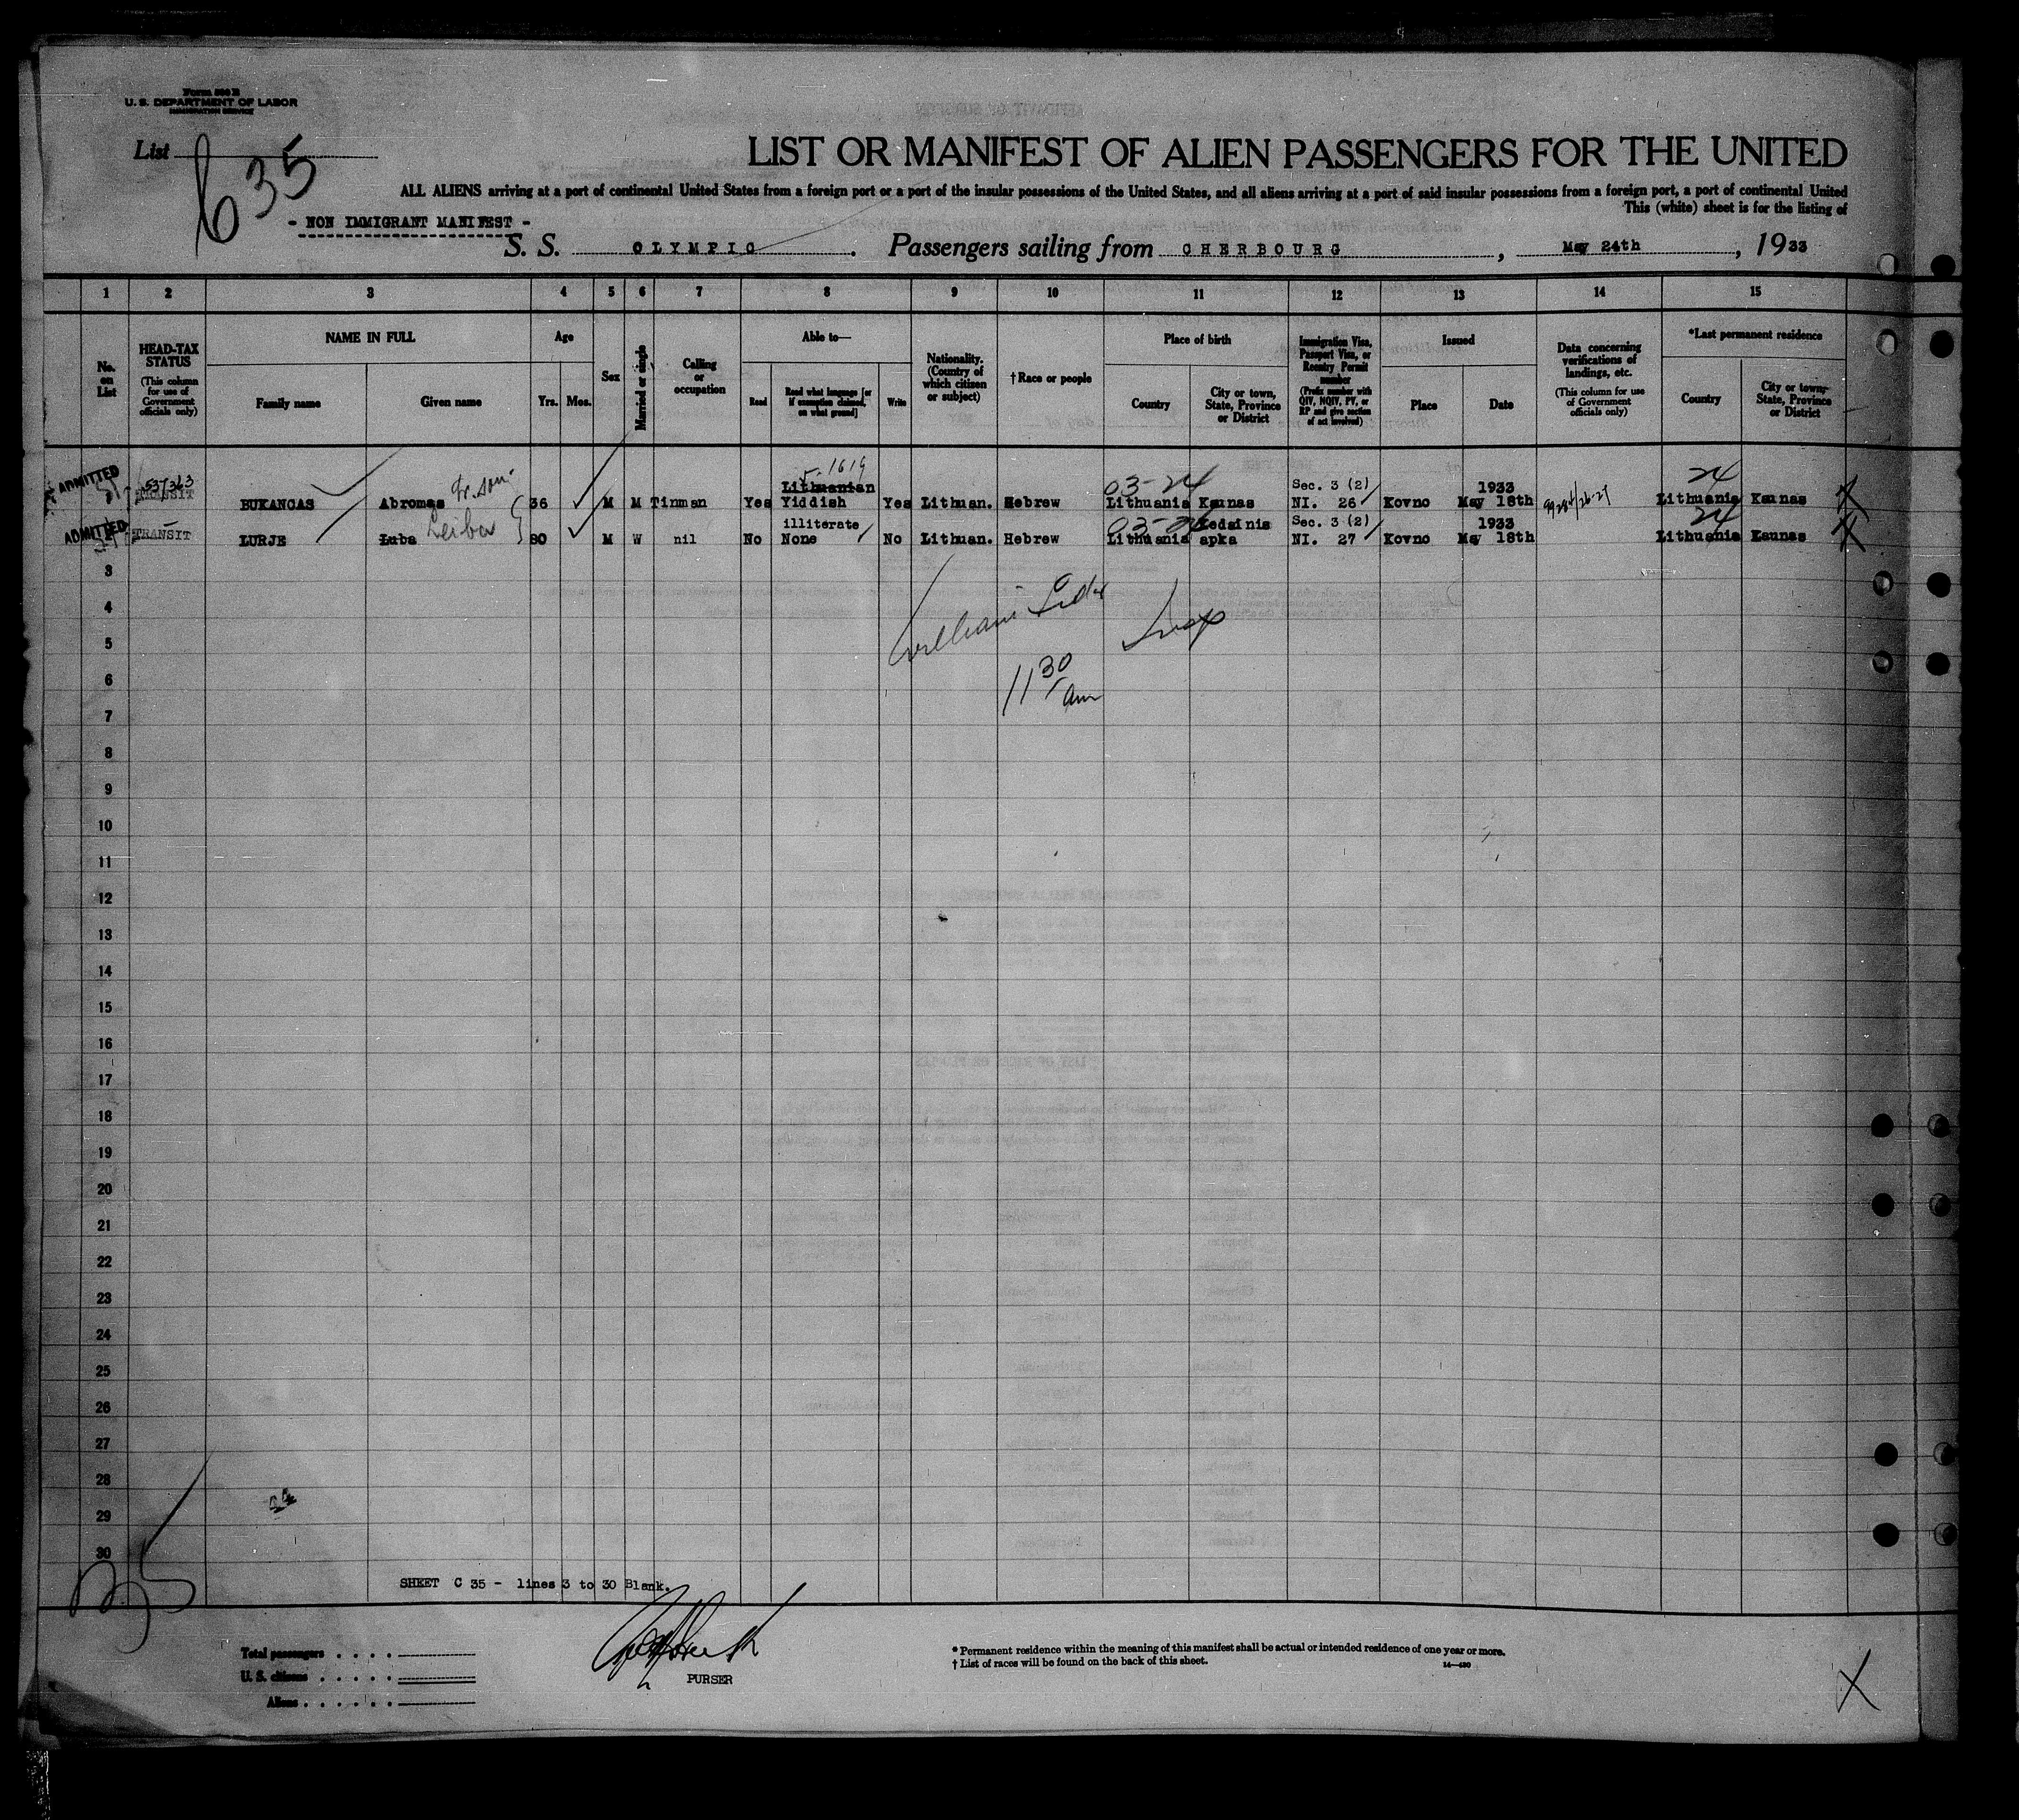 Form 500 B
U. S. DEPARTMENT OF LABOR
IMMIGRATION SERVICE
List 635
LIST OR MANIFEST OF ALIEN PASSENGERS FOR THE UNITED
ALL ALIENS arriving at a port of continental United States from a foreign port or a port of the insular possessions of the United States, and all aliens arriving at a port of said insular possessions from a foreign port, a port of continental United
This (white) sheet is for the listing of
- NON IMMIGRANT MANIFEST -
S. S. OLYMPIC . Passengers sailing from CHERBOURG , May 24th , 1933
1 2 3 4 5 6 7 8 9 10 11 12 13 14 15
No. on List
HEAD-TAX STATUS (This column for use of Government officials only)
NAME IN FULL
Family name Given name
Age
Yrs. Mos.
Sex
Married or single
Calling or occupation
Able to—
Read
Read what language [or if exemption claimed, on what ground]
Write
Nationality. (Country of which citizen or subject)
† Race or people
Place of birth
Country
City or town, State, Province or District
Immigration Visa, Passport Visa, or Reentry Permit number (Prefix number with QIV, NQIV, PV, or RP and give section of act involved)
Issued
Place Date
Data concerning verifications of landings, etc. (This column for use of Government officials only)
*Last permanent residence
Country
City or town, State, Province or District
5-1619
ADMITTED 537363 Lithuanian 03-24 Sec. 3 (2) 1933 24
TRANSIT BUKANCAS Abromas Gr. son 36 M M Tinman Yes Yiddish Yes Lithuan. Hebrew Lithuania Kaunas NI. 26 Kovno May 18th Lithuania Kaunas
ADMITTED illiterate 03-24 Kedainia Sec. 3 (2) 1933 24
TRANSIT LURJE Luba Leiba 80 M W nil No None No Lithuan. Hebrew Lithuania apka NI. 27 Kovno May 18th Lithuania Kaunas
3
4
William
5
Insp
6
11 30 am
7
8
9
10
11
12
13
14
15
16
17
18
19
20
21
22
23
24
25
26
27
28
29
30
35
SHEET C 35 - lines 3 to 30 Blank.
PURSER
Total passengers
U. S. citizens
Aliens
* Permanent residence within the meaning of this manifest shall be actual or intended residence of one year or more.
† List of races will be found on the back of this sheet.
14—430
X